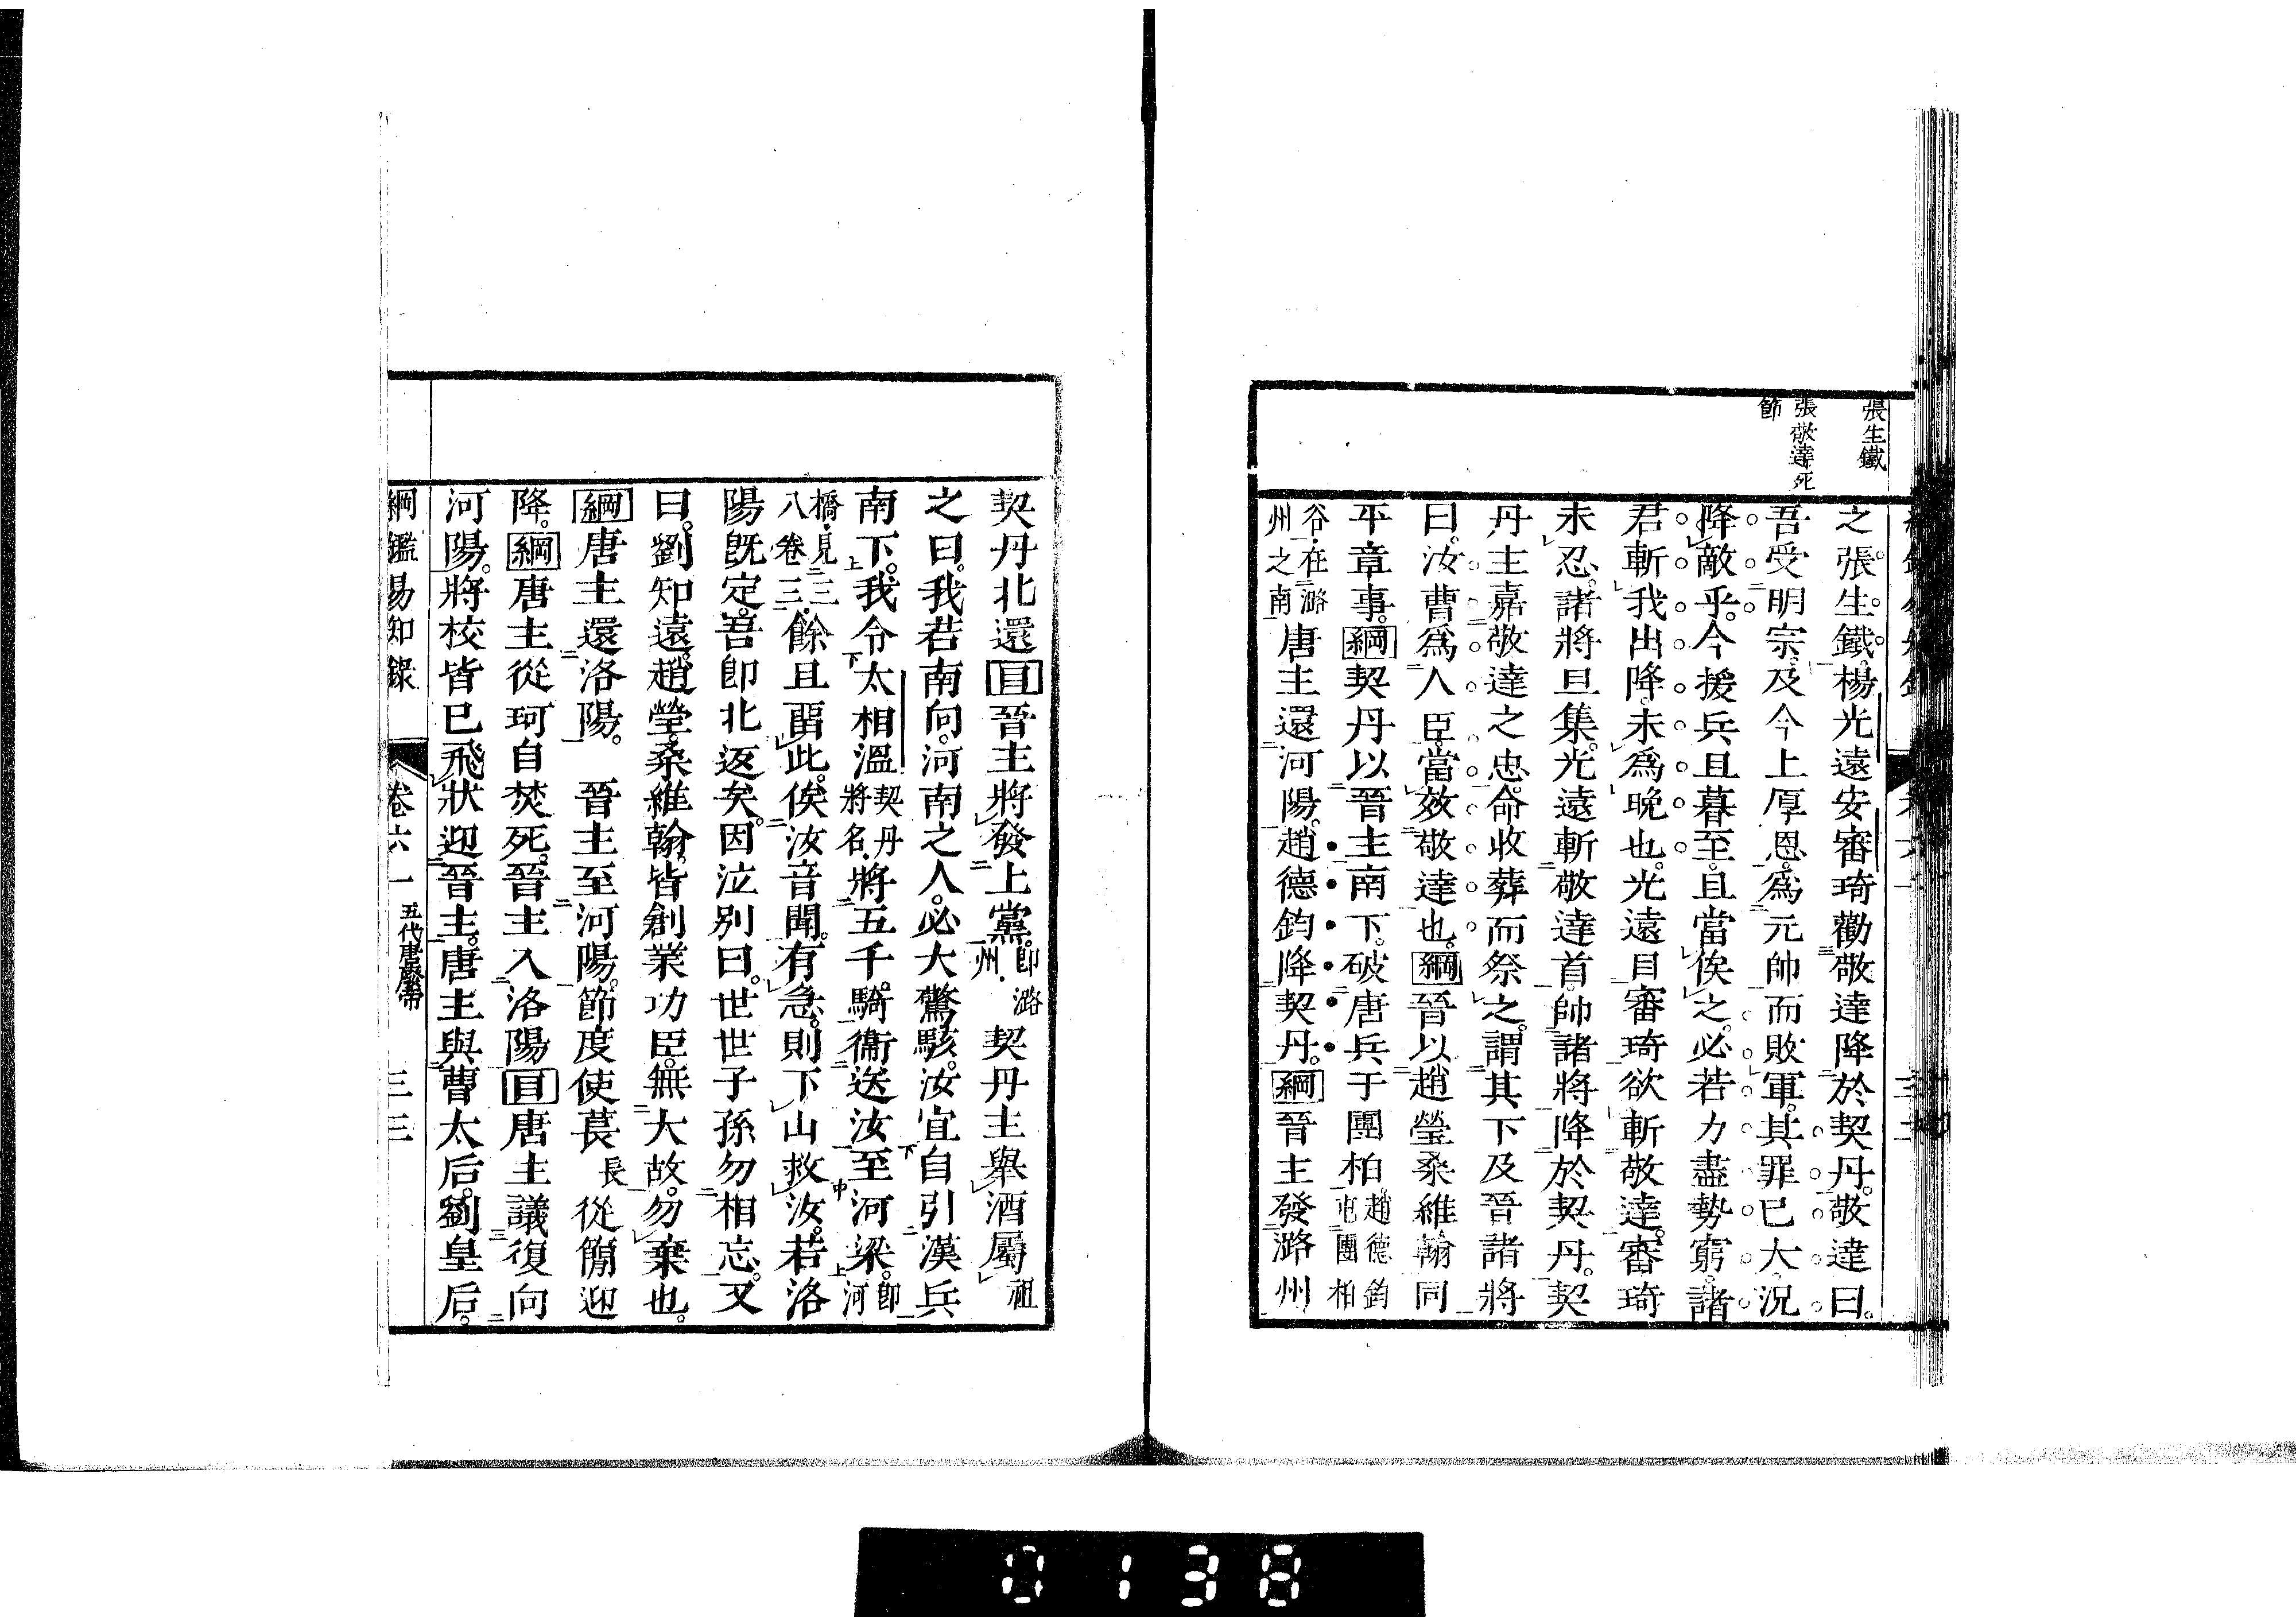 張生鐵
張敬達死
節
之張生鐵。楊光遠安審琦勸敬達降於契丹。敬達曰。
吾受明宗及今上厚恩。爲元帥而敗軍。其罪已大。況
降敵乎。今援兵且暮至。且當俟之。必若力盡勢窮。諸
君斬我出降。未爲晚也。光遠目審琦欲斬敬達。審琦
未忍。諸將旦集。光遠斬敬達首。帥諸將降於契丹。契
丹主嘉敬達之忠。命收葬而祭之。謂其下及晉諸將
曰。汝曹爲人臣。當效敬達也。綱晉以趙瑩桑維翰同
平章事。綱契丹以晉主南下。破唐兵于團柏。趙德鈞
屯團柏
谷。在潞
州之南
唐主還河陽。趙德鈞降契丹。綱晉主發潞州
契丹北還目晉主將發上黨。卽潞
州。
契丹主舉酒屬祖
之曰。我若南向。河南之人。必大驚駭。汝宜自引漢兵
南下。我令太相溫契丹
將名。
將五千騎衞送汝至河梁。卽
河
橋。見三
八卷三。
餘且畱此。俟汝音聞。有急。則下山救汝。若洛
陽旣定。吾卽北返矣。因泣別曰。世世子孫勿相忘。又
曰。劉知遠。趙瑩。桑維翰。皆創業功臣。無大故。勿棄也。
綱唐主還洛陽。 晉主至河陽。節度使萇長從簡迎
降。綱唐主從珂自焚死。晉主入洛陽目唐主議復向
河陽。將校皆已飛狀迎晉主。唐主與曹太后。劉皇后。
綱鑑易知錄 卷六一 五代唐廢帝 三三